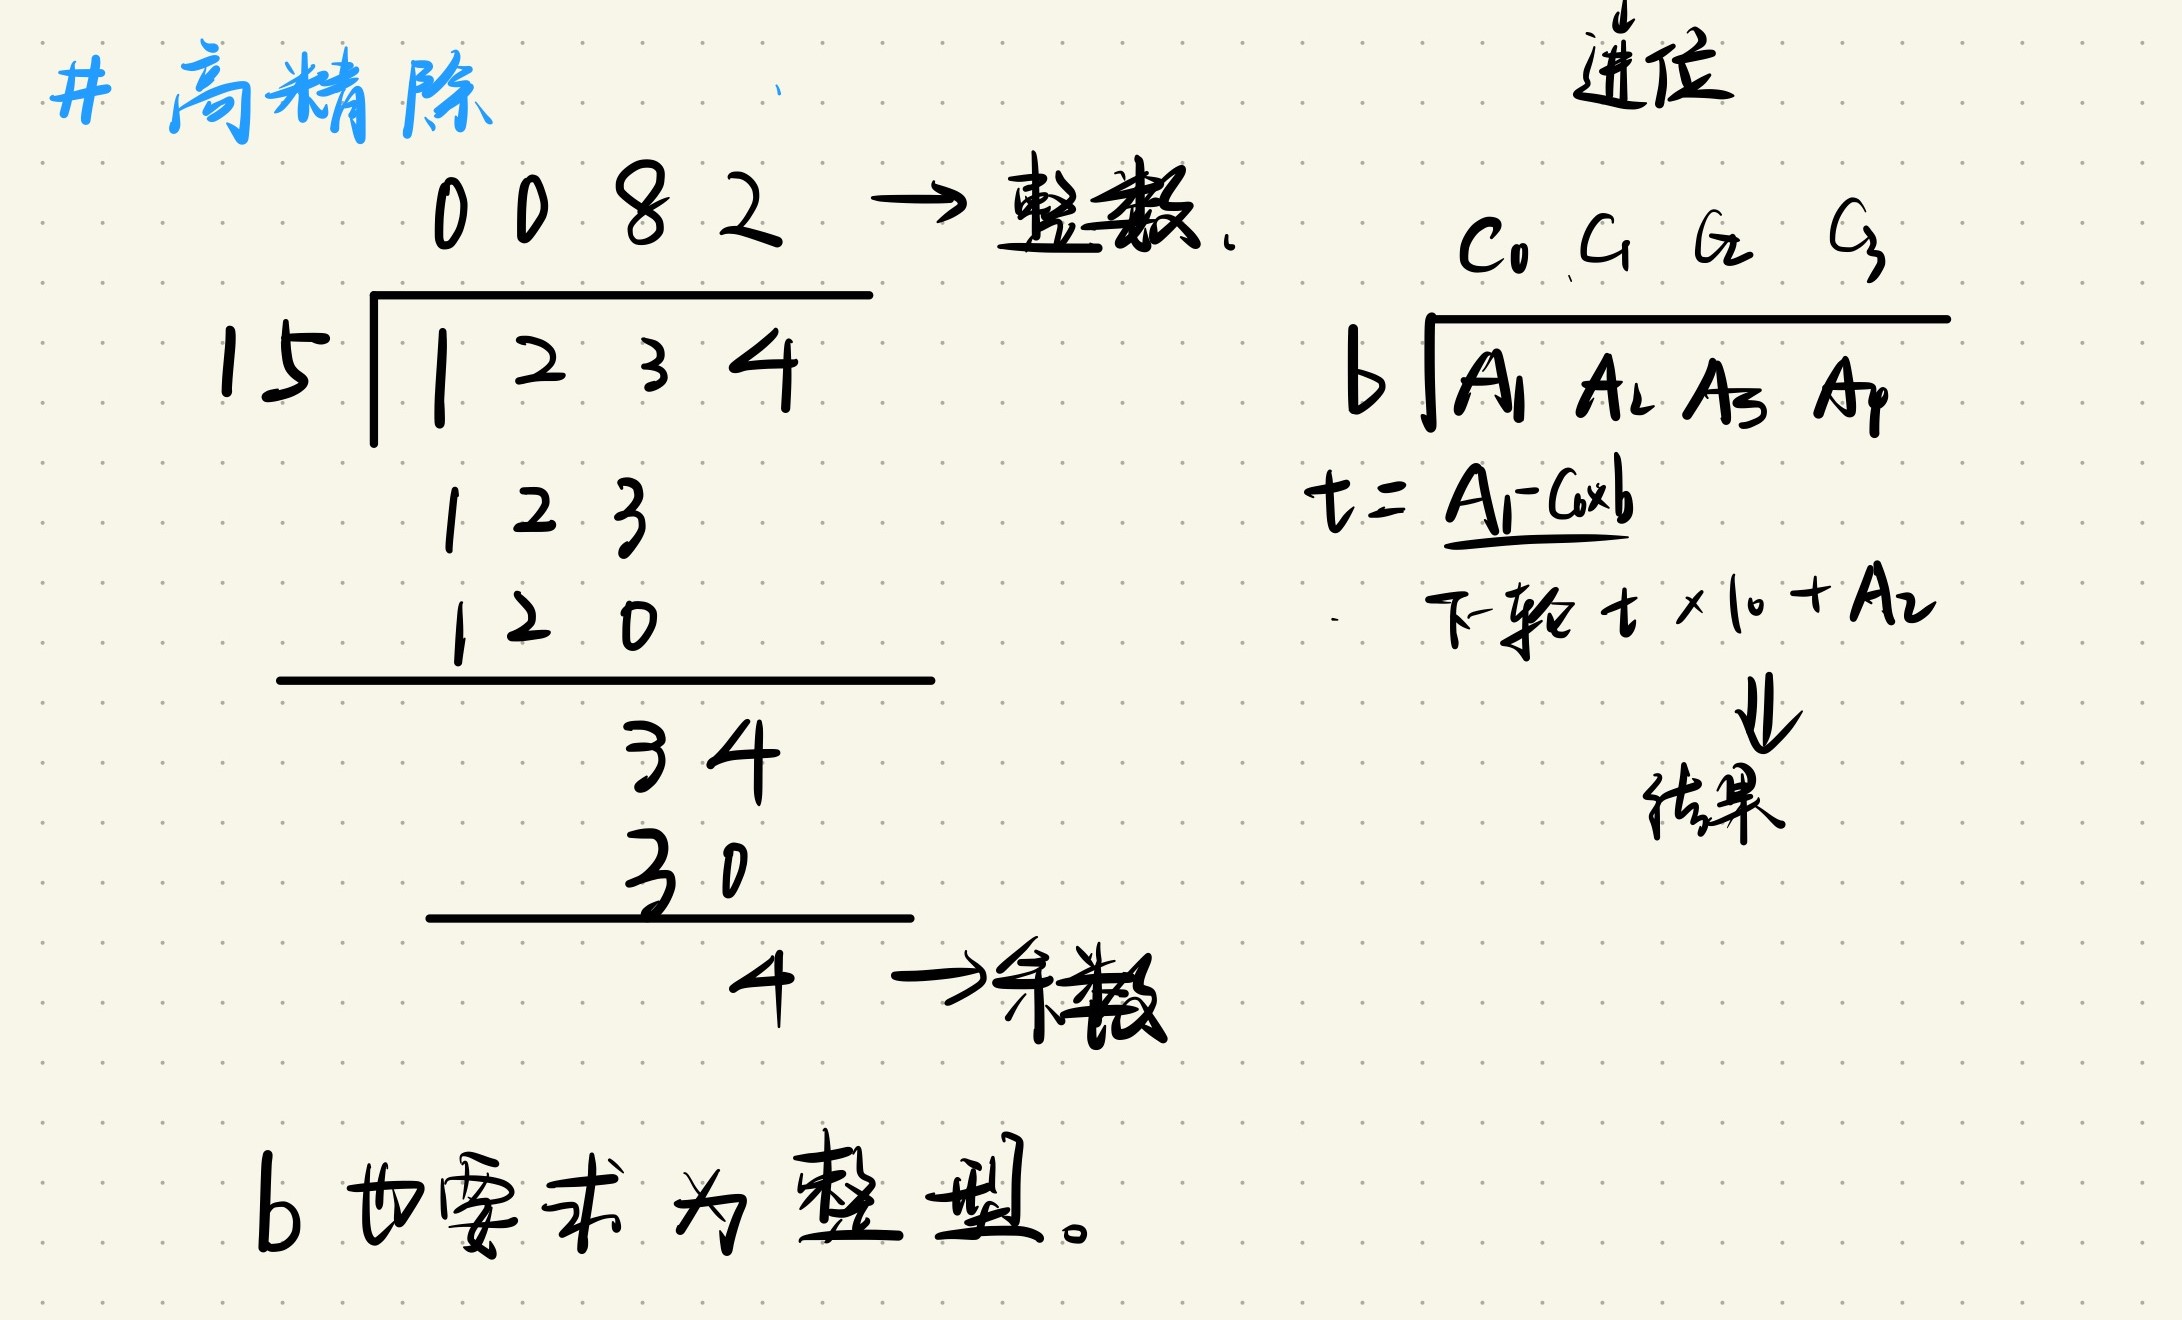 # 高精除
0 0 8 2 → 整数.
15 1 2 3 4
1 2 3
1 2 0
3 4
3 0
4 → 余数
b 也要求为整型。
↓
进位
C0 C1 C2 C3
b A1 A2 A3 A4
t = A1-C0×b
下轮 t × 10 + A2
⇓
结果